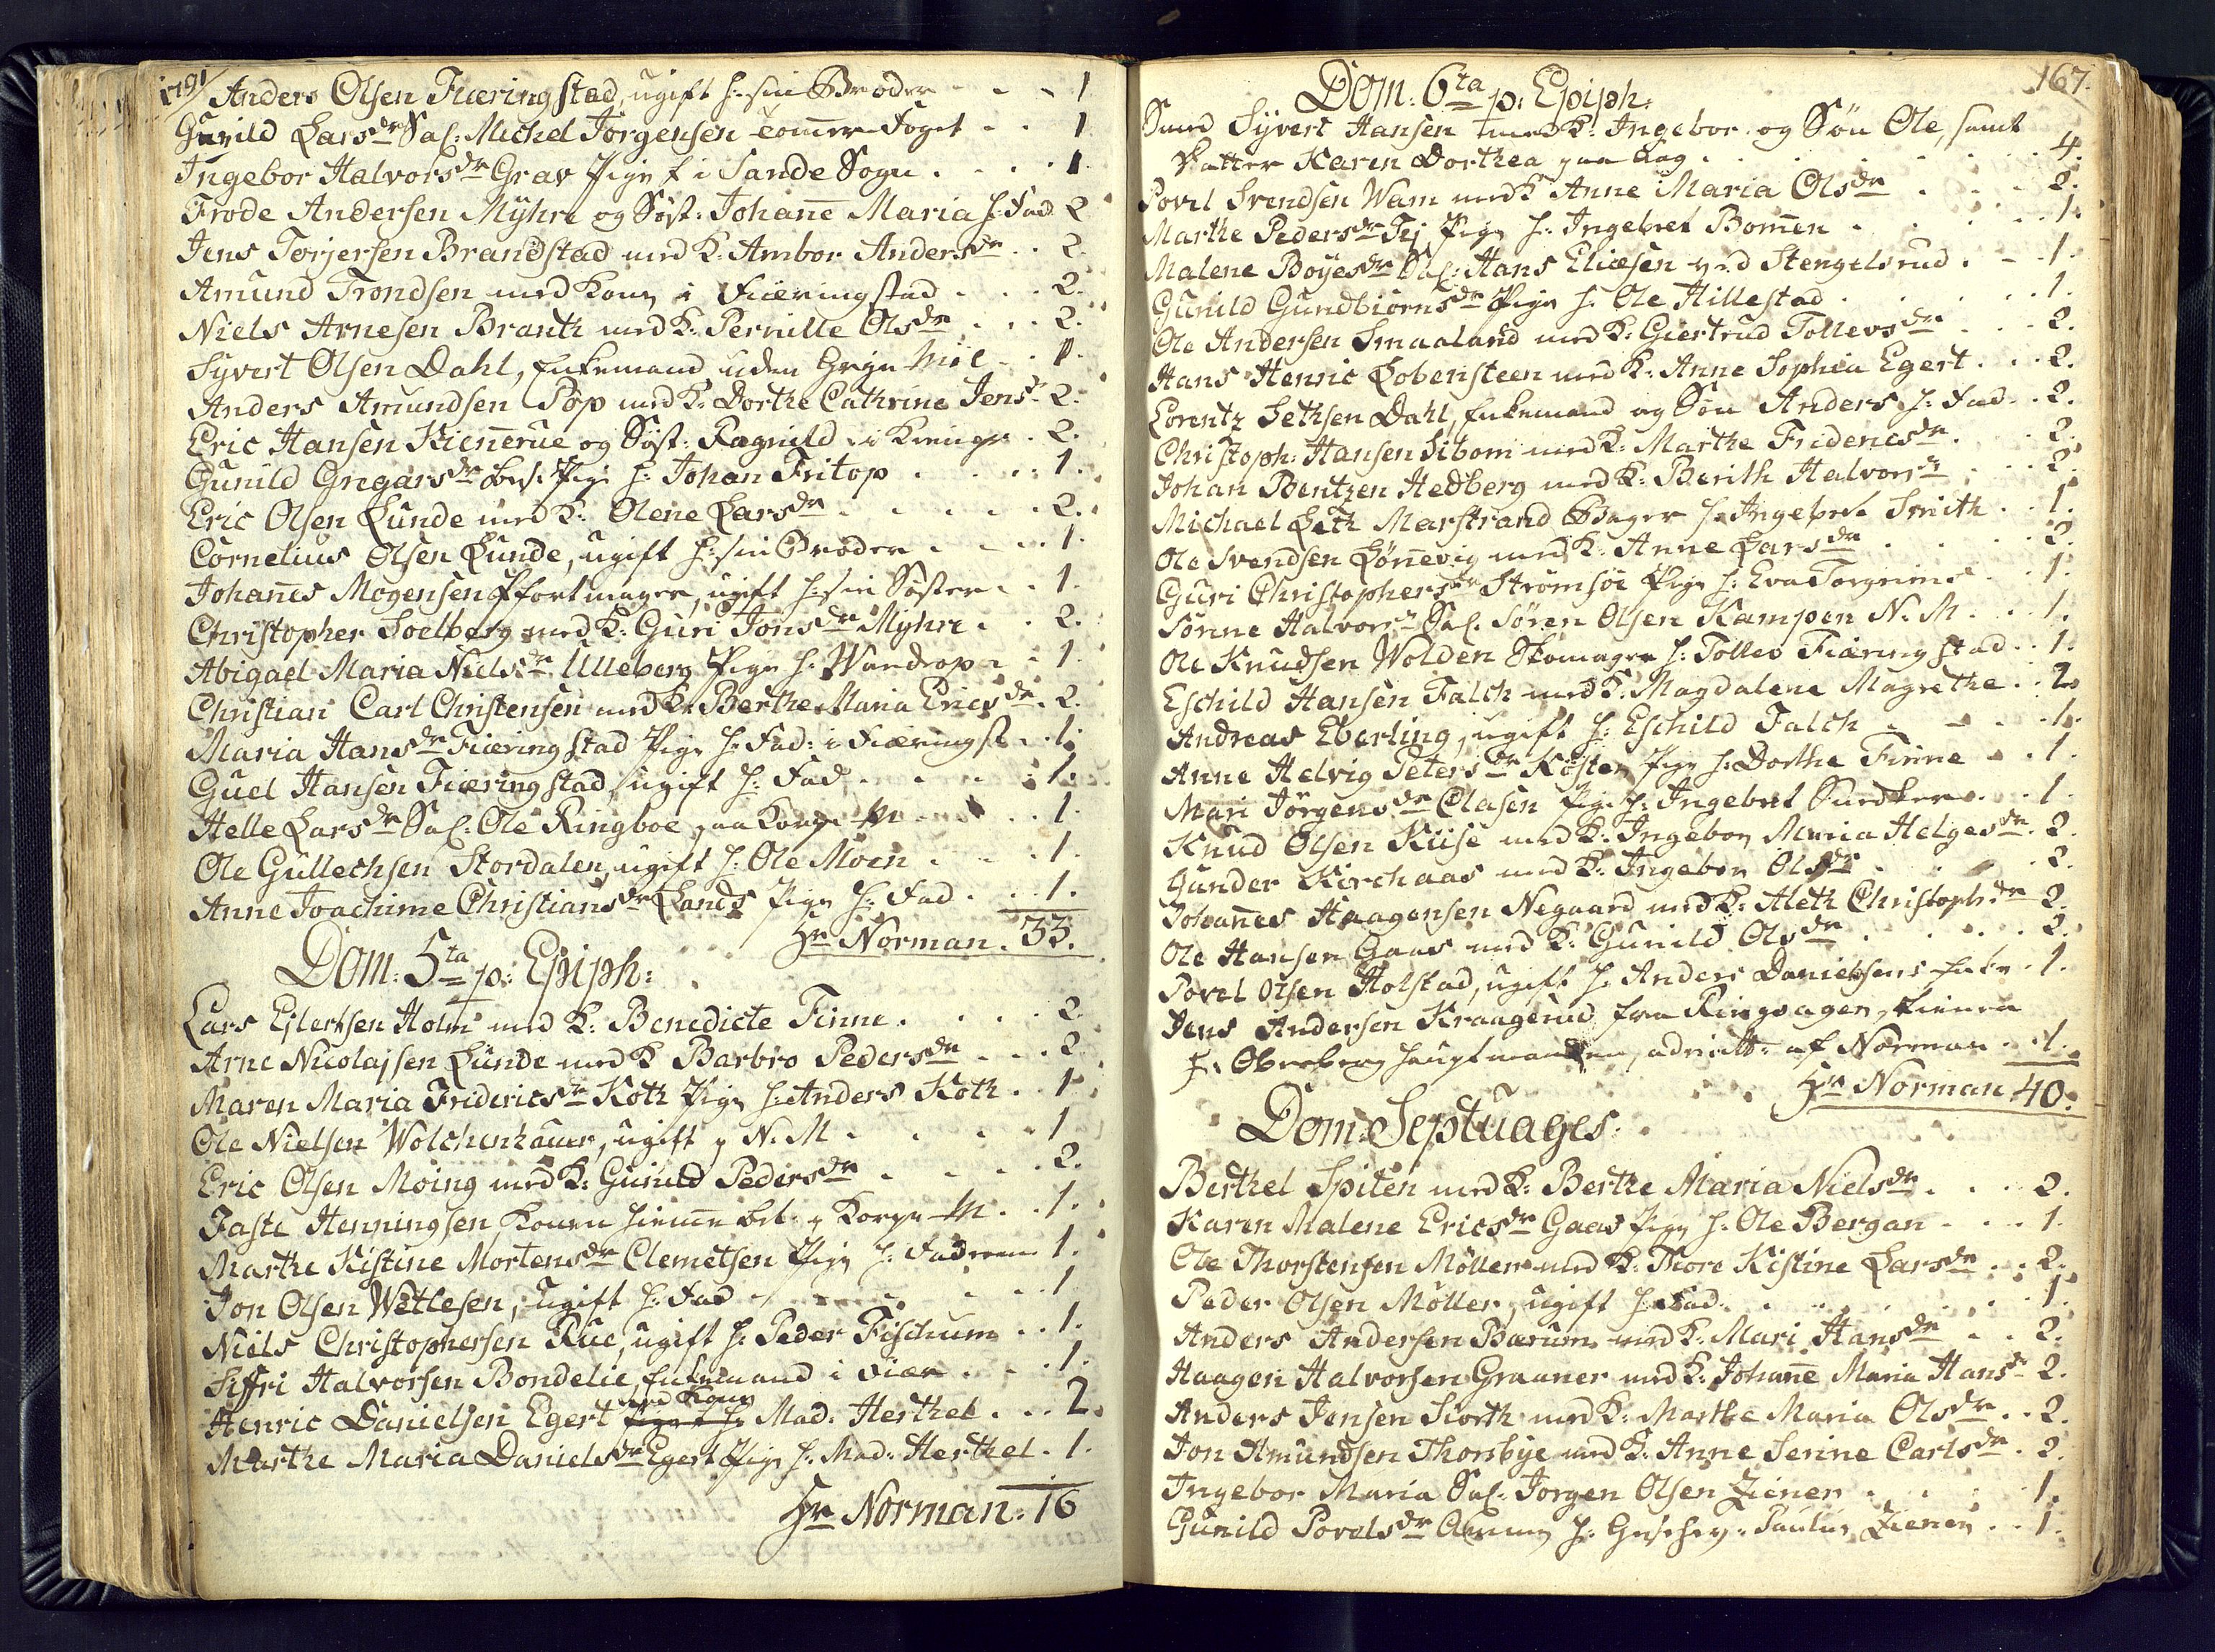 1791
Anders Olsen Fiæringstad, ugift h: sin Broder - - - 1
Gunild Larsdr Sal: Michel Jörgensen Tommer Foget - - 1
Ingebor Halvorsdr Grav Pige f i Sande Sogn . . . 1
Frode Andersen Mÿhre og Söst: Johane Maria h: Fad 2
Jens Torjersen Brandstad med K: Ambor Andersdr . . 2.
Amund Trondsen med Kone i Fiæringstad . . . 2.
Niels Arnesen Brantz med K: Pernille Olsdr . . . 2.
Syvert Olsen Dahl, Enkemand uden 1.
Anders Amundsen Pop med K: Dorthe Cathrine Jensdr 2.
Eric Hansen Kiennerue og Söst: Ragnild 2.
Gunild Gregarsdr Pige h: Johan Fritop . . . . 1.
Eric Olsen Lunde med K: Olene Larsdr . . . . . 2.
Cornelius Olsen Lunde, ugift h: sin Broder . . . . 1.
Johannes Mogensen ugift h: sin Söster . . 1.
Christopher Soelberg med K: Guri Jonsdr Mÿhre . . 2.
Abigael Maria Nielsdr Ulleberg Pige h: Wandrop . . 1.
Christian Carl Christensen med K: Berthe Maria Ericsdr . 2.
Maria Hansdr Fiæringstad Pige h: Fad: i Fiæringst . . 1.
Guel Hansen Fiæringstad, ugift h: Fad . . . . . 1.
Helle Larsdr Sal: Ole Ringboe paa M . . . 1.
Ole Gullechsen Stordalen, ugift h: Ole Moen . . . 1.
Anne Joachime Christiansdr Lands Pige h: Fad . . . 1.
Hr Norman . 33.
Dom: 5ta p: Epiph:
Lars Ejlertsen Holm med K: Benedicte Finne . . . . 2
Arne Nicolajsen Lunde med K Barbro Pedersdr . . . 2
Maren Maria Fridericsdr Koth Pige h: Anders Koth . . 1
Ole Nielsen Wolchenhauer, ugift N. M . . . . 1
Eric Olsen Moing med K: Gunild Pedersdr . . . . 2.
Faste Henningsen, Konen hiemme M . . 1.
Marthe Kistine Mortensdr Clemetsen Pige h: Fadren 1.
Jon Olsen Wetlesen, ugift h: Fad . . . . . 1
Niels Christophersen Rue, ugift h: Peder Fischum . . 1.
Siffri Halvorsen Bondelie, Enkemand i Fiær . . . 1.
med Kone
Henric Danielsen Egert Mad: Herthel . . . 2.
Marthe Maria Danielsdr Egert Pige h: Mad: Herthel . 1.
Hr Norman: 16
167.
Dom: 6ta p: Epiph:
Smed Sÿvert Hansen med K: Ingebor og Sön Ole, samt
Datter Karen Dorthea paa Aag . . . . . . . 4.
Povel Svendsen Wam med K Anne Maria Olsdr . . . 2.
Marthe Pedersdr Fej Pige h: Ingebret Bommen . . . . 1.
Malene Boÿesdr Sal: Hans Eliæsen ved Stengelsrud . - 1.
Gunild Gundbiörnsdr Pige h: Ole Hillestad . . . . 1.
Ole Andersen Smaaland med K: Giertrud Tollevsdr . . . 2.
Hans Henric Lobensteen med K: Anne Sophia Egert . . . 2.
Lorentz Sethsen Dahl, Enkemand og Sön Anders h: Fad . . 2.
Christoph: Hansen Sibom med K: Marthe Fridericsdr . . . 2.
Johan Bentzen Hedberg med K: Berith Halvorsdr . . . 2.
Michael Leth Marstrand Bager h: Ingebret Smith . . 1.
Ole Svendsen Lönnevig med K: Anne Larsdr . . . . 2.
Guri Christophersdr Strömsöe Pige h: Eva Torgrims . . 1.
Sönne Halvorsdr Sal. Sören Olsen Kampen N. M . . 1.
Ole Knudsen Wolden Skomager h: Tollev Fiæringstad . . 1.
Eschild Hansen Falch med K: Magdalene Magrethe . . 2.
Andreas Eberling, ugift h: Eschild Falch . . . . 1.
Anne Helvig Petersdr Köster Pige h: Dorthe Finne . . 1.
Mari Jörgensdr Clasen Pige h: Ingebret . . 1.
Knud Olsen Kiise med K: Ingebor Maria Helgesdr . 2.
Gunder Kirchaas med K: Ingebor Olsdr . . . . 2.
Johannes Haagensen Negaard med K: Aleth Christophdr 2.
Ole Hansen Gaas med K: Gunild Olsdr . . . . . 2.
Povel Olsen Holstad, ugift h: Anders Danielsens Enke . 1.
Jens Andersen Kraagerud fra Ringsager, tienen
h: Oberberg Hauptmanden, admitt: af Norman . . 1.
Hr Norman 40.
Dom: Septuages:
Berthel Spiten med K: Berthe Maria Nielsdr . . . 2.
Karen Malene Ericsdr Gaas Pige h: Ole Bergan . . . 1.
Ole Thorstensen Möller med K: Thore Kistine Larsdr . . 2.
Peder Olsen Möller, ugift h: Fad . . . . . . . 1.
Anders Andersen Bærum med K: Mari Hansdr . . . 2.
Haagen Halvorsen Graaner med K: Johanne Maria Hansdr 2.
Anders Jensen Siorth med K: Marthe Maria Olsdr . . 2.
Jon Amundsen Thorsbÿe med K: Anne Serine Carlsdr . 2.
Ingebor Maria Sal: Jörgen Olsen Ziener . . . . 1.
Gunild Povelsdr h: Paulus Ziener . . 1.